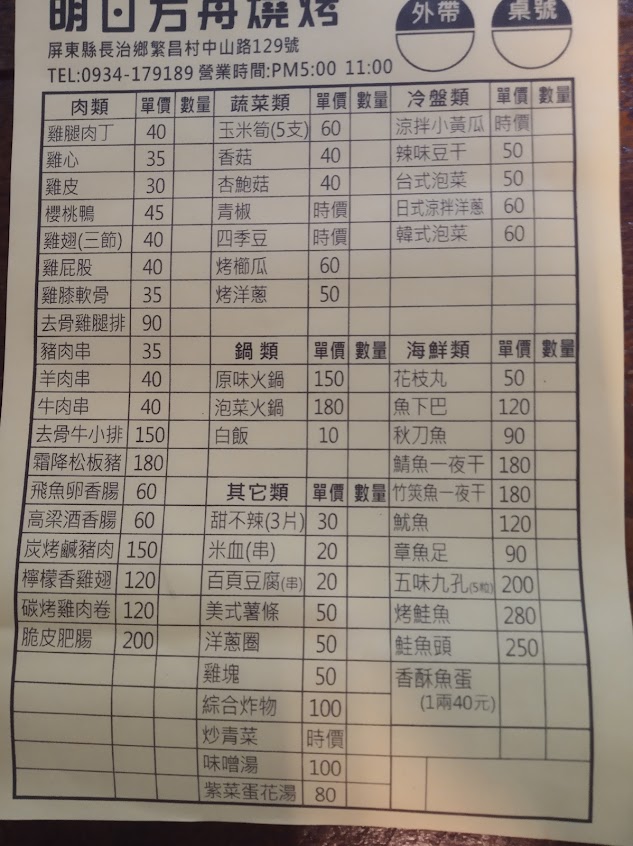 明日方舟燒烤
外帶
桌號
屏東縣長治鄉繁昌村中山路129號
TEL:0934-179189 營業時間:PM5:00 11:00
肉類 單價 數量 蔬菜類 單價 數量 冷盤類 單價 數量
雞腿肉丁 40 玉米筍(5支) 60 涼拌小黃瓜 時價
雞心 35 香菇 40 辣味豆干 50
雞皮 30 杏鮑菇 40 台式泡菜 50
櫻桃鴨 45 青椒 時價 日式涼拌洋蔥 60
雞翅(三節) 40 四季豆 時價 韓式泡菜 60
雞屁股 40 烤櫛瓜 60
雞膝軟骨 35 烤洋蔥 50
去骨雞腿排 90
豬肉串 35 鍋類 單價 數量 海鮮類 單價 數量
羊肉串 40 原味火鍋 150 花枝丸 50
牛肉串 40 泡菜火鍋 180 魚下巴 120
去骨牛小排 150 白飯 10 秋刀魚 90
霜降松板豬 180 鯖魚一夜干 180
飛魚卵香腸 60 其它類 單價 數量 竹筴魚一夜干 180
高梁酒香腸 60 甜不辣(3片) 30 魷魚 120
炭烤鹹豬肉 150 米血(串) 20 章魚足 90
檸檬香雞翅 120 百頁豆腐(串) 20 五味九孔(5粒) 200
碳烤雞肉卷 120 美式薯條 50 烤鮭魚 280
脆皮肥腸 200 洋蔥圈 50 鮭魚頭 250
雞塊 50 香酥魚蛋
綜合炸物 100 (1兩40元)
炒青菜 時價
味噌湯 100
紫菜蛋花湯 80